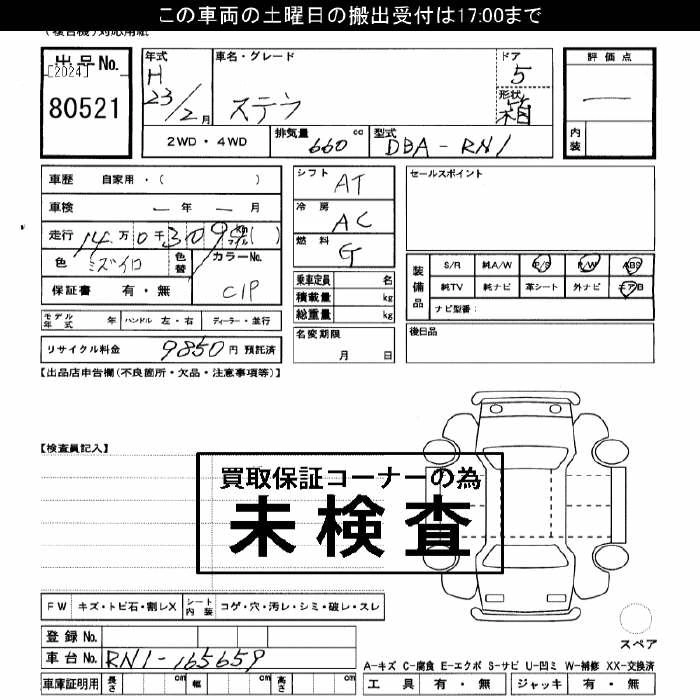 この車両の土曜日の搬出受付は17:00まで
出品No.
[2024]
80521
年式
H
23/2月
車名・グレード
ステラ
ドア
5
形状
箱
評価点
—
内装
2WD・4WD
排気量 660 cc
型式 DBA-RN1
車歴 自家用・( )
車検 — 年 — 月
走行 14万0千309 km マイル ( )
色 ミズイロ
色替
カラーNo.
C1P
保証書 有・無
モデル年式 年
ハンドル 左・右
ディーラー・並行
リサイクル料金 9850円 預託済
シフト AT
冷房 AC
燃料 G
乗車定員 名
積載量 kg
総重量 kg
名変期限
月 日
セールスポイント
装備品
S/R 純A/W P/S P/W ABS
純TV 純ナビ 革シート 外ナビ エアB
ナビ型番:
後日品
【出品店申告欄(不良箇所・欠品・注意事項等)】
【検査員記入】
買取保証コーナーの為
未検査
FW キズ・トビ石・割レX
シート内装 コゲ・穴・汚レ・シミ・破レ・スレ
登録No.
車台No. RN1-165659
車庫証明用 長さ cm 幅 cm 高さ cm
スペア
A-キズ C-腐食 E-エクボ S-サビ U-凹ミ W-補修 XX-交換済
工具 有・無 ジャッキ 有・無